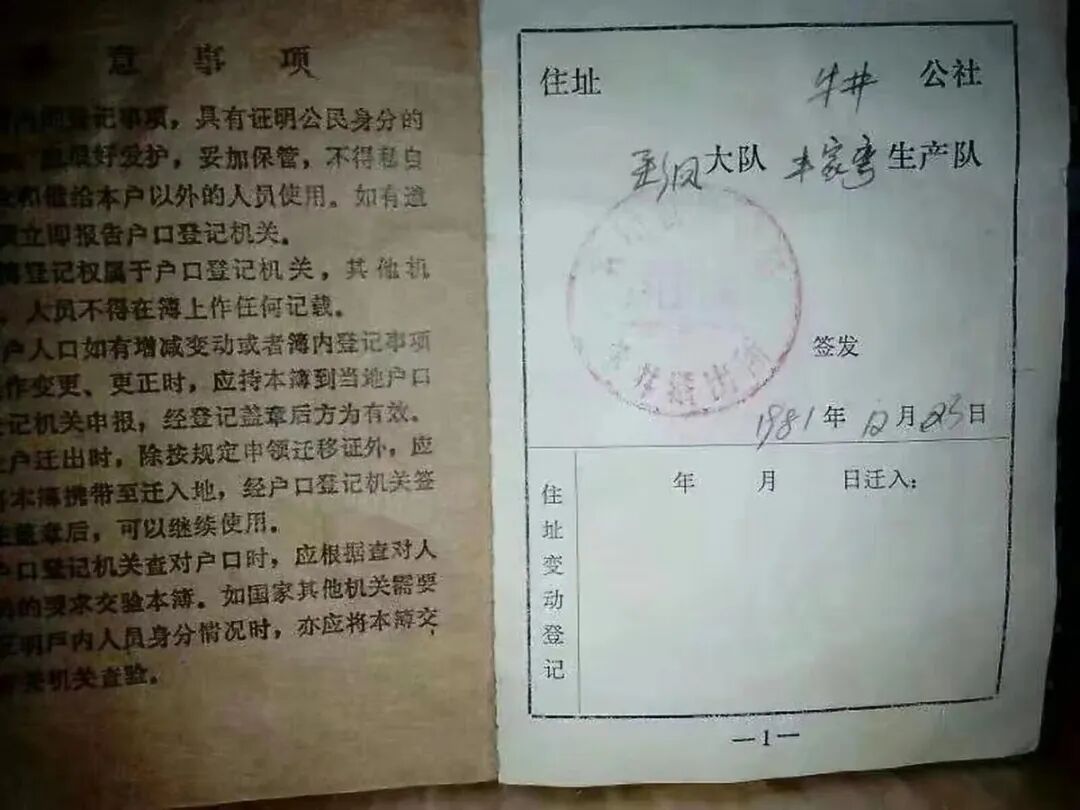 意事项
登记事项，具有证明公民身分的
好爱护，妥加保管，不得私自
和借给本户以外的人员使用。如有遗
立即报告户口登记机关。
簿登记权属于户口登记机关，其他机
人员不得在簿上作任何记载。
户人口如有增减变动或者簿内登记事项
作变更、更正时，应持本簿到当地户口
记机关申报，经登记盖章后方为有效。
户迁出时，除按规定申领迁移证外，应
将本簿携带至迁入地，经户口登记机关签
注盖章后，可以继续使用。
户口登记机关查对户口时，应根据查对人
员的要求交验本簿。如国家其他机关需要
证明户内人员身分情况时，亦应将本簿交
机关查验。
住址 牛井 公社
大队 家弯 生产队
派出所
签发
1981年12月23日
住址变动登记
年 月 日迁入：
—1—